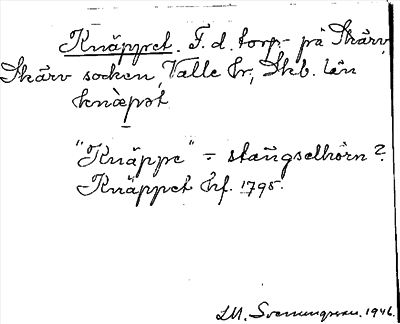 Knäppet. F. d. torp på Skärv,
Skärv socken, Valle hr, Skb. län
knæpət
"Knäppe" = stängselhörn?
Knäppet hf. 1795.
LM. Svenungsson. 1946.